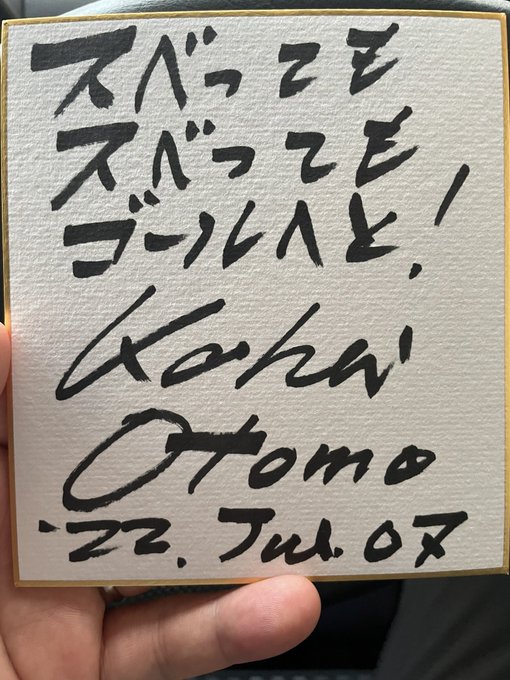 スベっても
スベっても
ゴールへと!
Kohei
Otomo
'22. Jul. 07